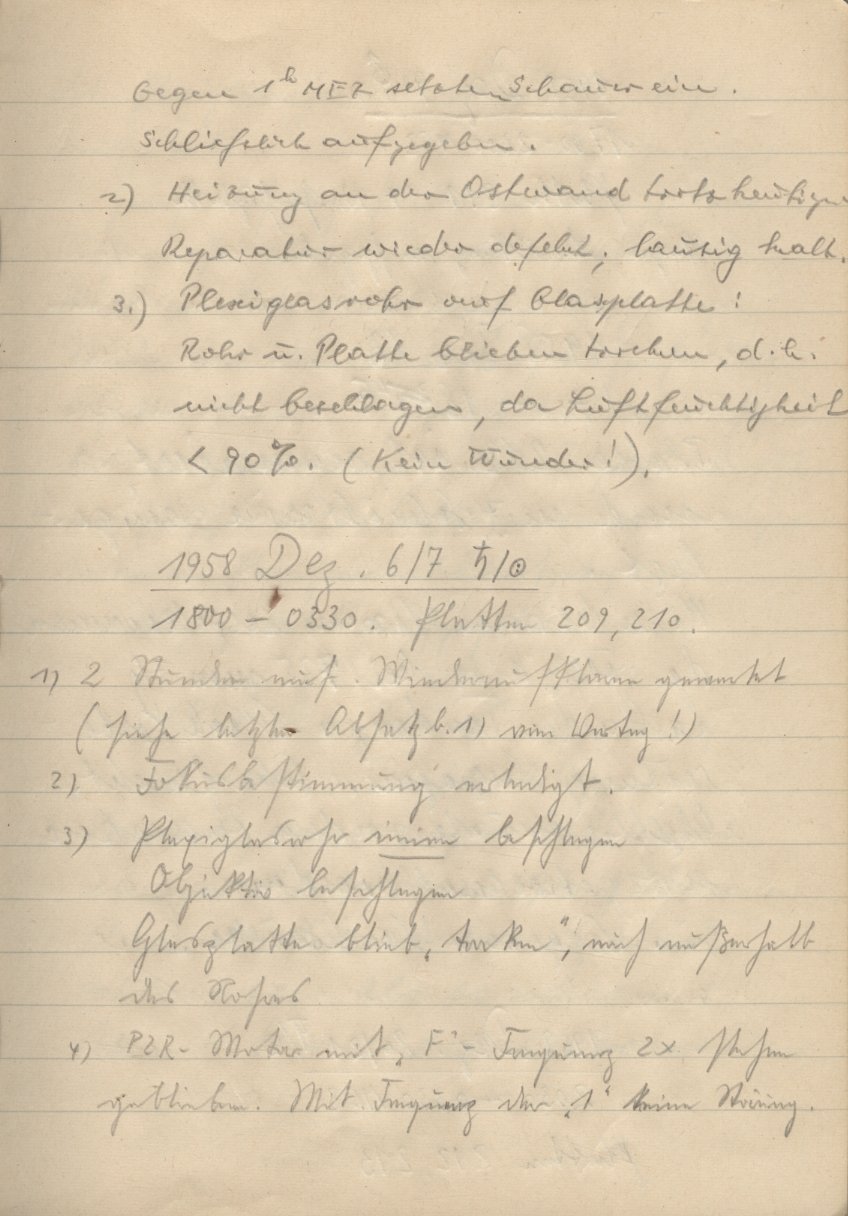 Gegen 1h MEZ setzten Schauer ein.
Schließlich aufgegeben.
2) Heizung an der Ostwand trotz heutiger
Reparatur wieder defekt; lausig kalt.
3.) Plexiglasrohr auf Glasplatte:
Rohr u. Platte blieben trocken, d.h.
nicht beschlagen, da Luftfeuchtigkeit
< 90%. (Kein Wunder!).
1958 Dez. 6/7 ♄/☉
1800 – 0330. Platten 209, 210.
1) 2 Stunden auf gewartet
(siehe letzter Absatz b. 1) vom Vortag!)
2) Fokusbestimmung erledigt.
3) Plexiglasrohr innen beschlagen
Objektiv beschlagen
Glasplatte blieb „trocken“, auch außerhalb
des Rohres
4) PZR-Motor mit „F“-Frequenz 2x stehen
geblieben. Mit Frequenz der „1“ keine Störung.